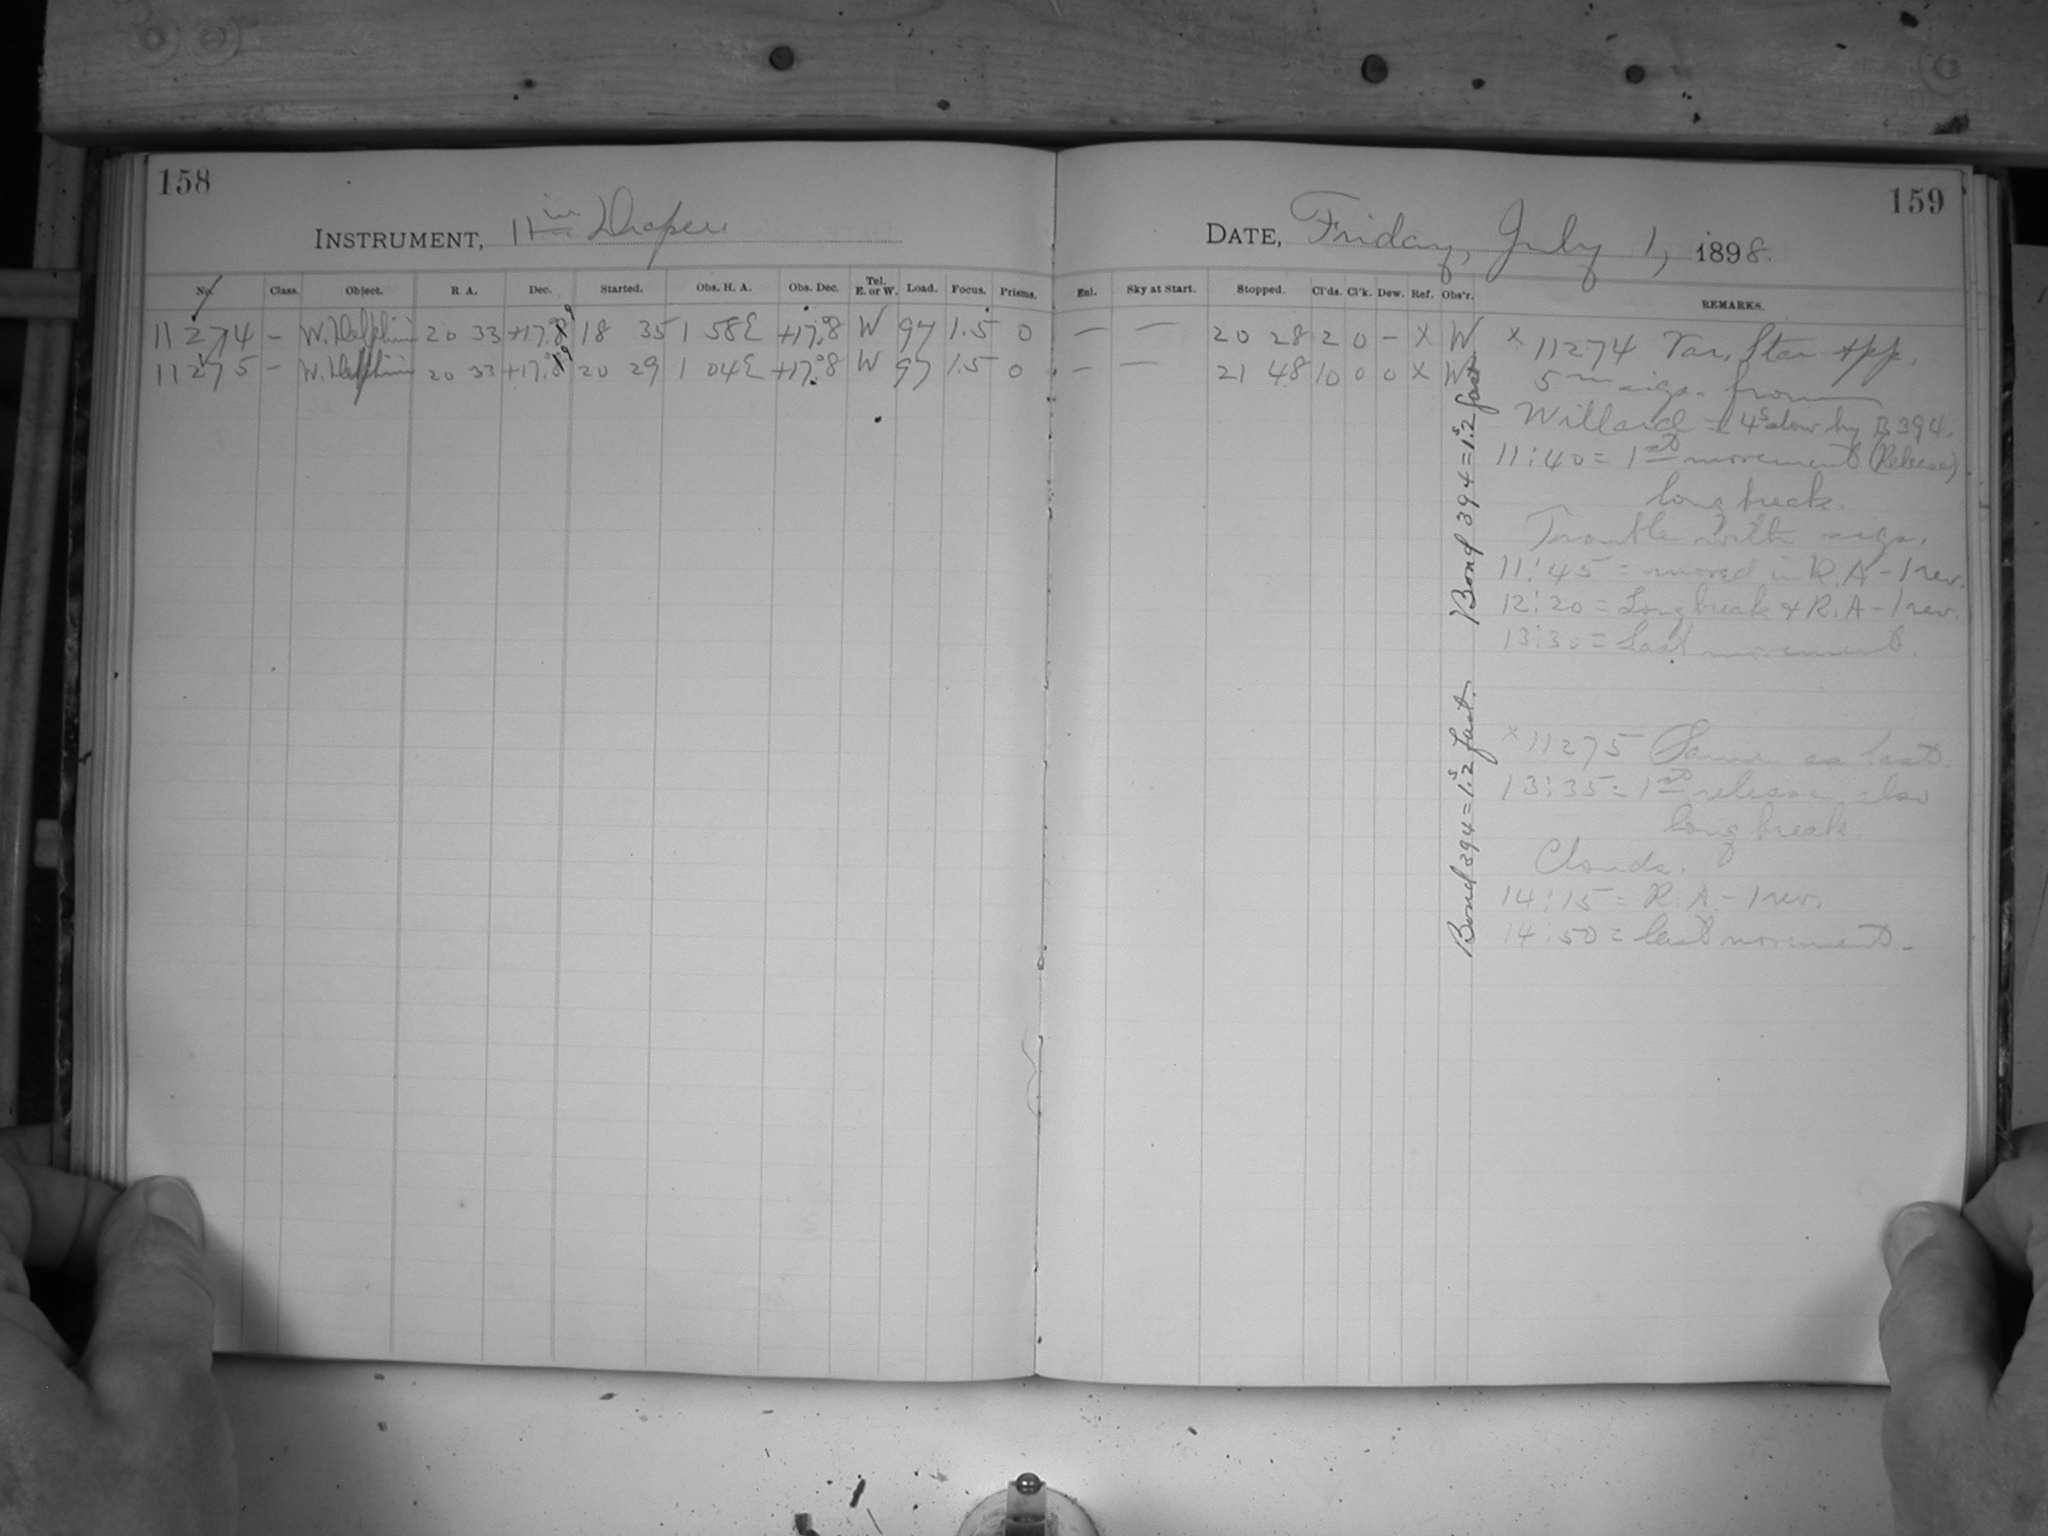 158
INSTRUMENT, 11 in Draper
No. Class. Object. R. A. Dec. Started. Obs. H. A. Obs. Dec. Tel. E. or W. Load. Focus. Prisms.
11274 – W. Delphini 20 33 +17.°9 18 35 1 58E +17.°8 W 97 1.5 0
11275 – W. Delphini 20 33 +17.°9 20 29 1 04E +17.°8 W 97 1.5 0
159
DATE, Friday, July 1, 1898.
Enl. Sky at Start. Stopped. Cl'ds. Cl'k. Dew. Ref. Obs'r. REMARKS.
– – 20 28 2 0 – x W
– – 21 48 10 0 0 x W
Bond 394 = 1.ˢ2 fast
Bond 394 = 1.ˢ2 fast.
x 11274 Var. Star App.
5 m sigs. from
Willard = 4ˢ slow by B 394.
11:40 = 1st movement (Release)
long break.
Trouble with sigs.
11:45 = moved in R.A – 1 rev.
12:20 = Long break & R.A – 1 rev.
13:30 = Last movement.
x 11275 Same as last.
13:35 = 1st release also
long break.
Clouds.
14:15 = R.A. – 1 rev.
14:50 = last movement –